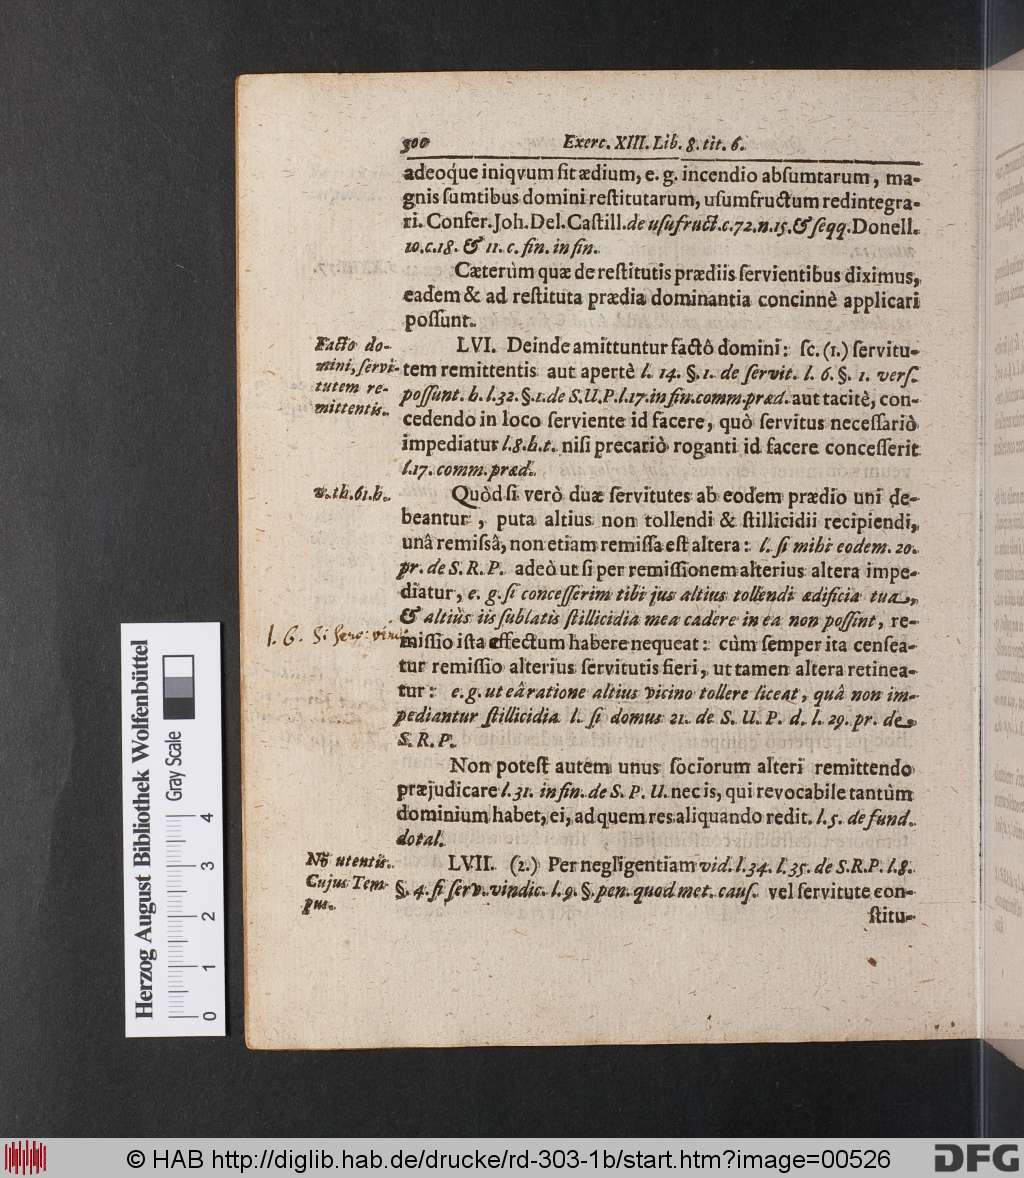 300 Exerc. XIII. Lib. 8. tit. 6.
adeoque iniqvum sit ædium, e. g. incendio absumtarum, ma-
gnis sumtibus domini restitutarum, usumfructum redintegra-
ri. Confer. Joh. Del. Castill. de usufruct. c. 72. n. 15. & seqq. Donell.
10. c. 18. & 11. c. fin. in fin.
Cæterùm quæ de restitutis prædiis servientibus diximus,
eadem & ad restituta prædia dominantia concinnè applicari
possunt.
Facto do-
mini, servi-
tutem re-
mittentis.
LVI. Deinde amittuntur factô domini: sc. (1.) servitu-
tem remittentis aut apertè l. 14. §. 1. de servit. l. 6. §. 1. vers.
possunt. h. l. 32. §. 1. de S. U. P. l. 17. in fin. comm. præd. aut tacitè, con-
cedendo in loco serviente id facere, quò servitus necessariò
impediatur l. 8. h. t. nisi precariò roganti id facere concesserit
l. 17. comm. præd.
v. th. 61. h.
Quòd si verò duæ servitutes ab eodem prædio uni de-
beantur, puta altius non tollendi & stillicidii recipiendi,
unâ remissâ, non etiam remissa est altera: l. si mihi eodem. 20.
pr. de S. R. P. adeò ut si per remissionem alterius altera impe-
diatur, e. g. si concesserim tibi jus altius tollendi ædificia tua,
& altiùs iis sublatis stillicidia mea cadere in ea non possint, re-
l. 6. Si serv: vind:
missio ista effectum habere nequeat: cùm semper ita censea-
tur remissio alterius servitutis fieri, ut tamen altera retinea-
tur: e. g. ut eâ ratione altius vicino tollere liceat, quâ non im-
pediantur stillicidia l. si domus 21. de S. U. P. d. l. 29. pr. de
S. R. P.
Non potest autem unus sociorum alteri remittendo
præjudicare l. 31. in fin. de S. P. U. nec is, qui revocabile tantùm
dominium habet, ei, ad quem res aliquando redit. l. 5. de fund.
dotal.
Nō utentis.
Cujus Tem-
pus.
LVII. (2.) Per negligentiam vid. l. 34. l. 35. de S. R. P. l. 8.
§. 4. si serv. vindic. l. 9. §. pen. quod met. caus. vel servitute con-
stitu-
Herzog August Bibliothek Wolfenbüttel
Gray Scale
0 1 2 3 4
© HAB http://diglib.hab.de/drucke/rd-303-1b/start.htm?image=00526
DFG